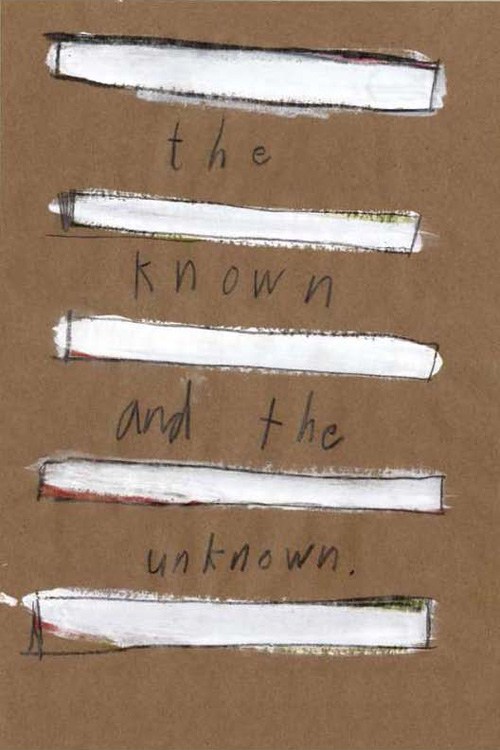 the
known
and the
unknown.